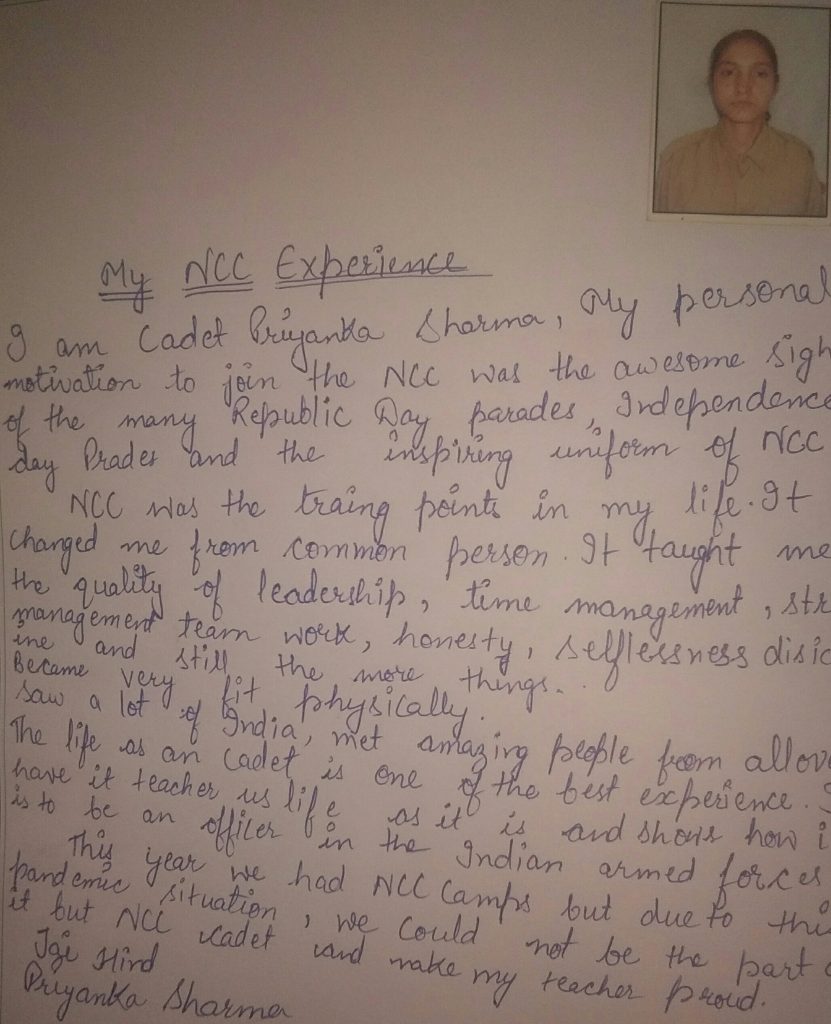 My NCC Experience
I am Cadet Priyanka Sharma, My personal
motivation to join the NCC was the awesome sigh
of the many Republic Day parades, Independence
day Prades and the inspiring uniform of NCC
NCC was the traing points in my life. It
changed me from common person. It taught me
the quality of leadership, time management, str
management team work, honesty, selflessness disic
ine and still the more things...
Became very fit physically.
Saw a lot of India, met amazing people from allov
The life as an cadet is one of the best experience.
have it teacher us life as it is and shows how i
is to be an officer in the Indian armed forces
This year we had NCC Camps but due to this
pandemic situation, we could not be the part o
it but NCC cadet and make my teacher proud.
Jai Hind
Priyanka Sharma